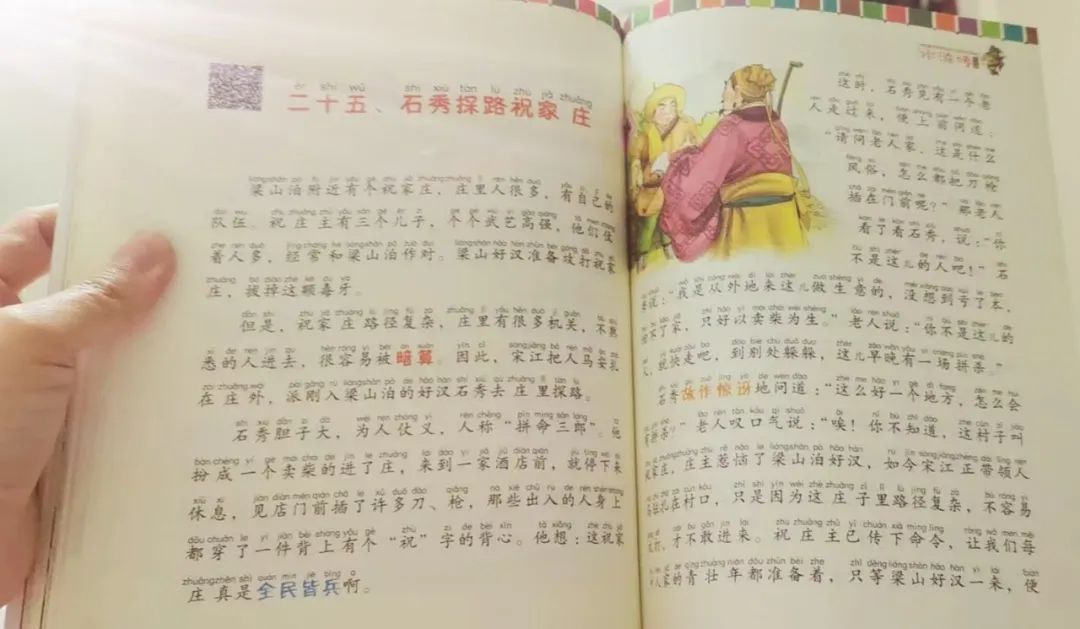 二十五、石秀探路祝家庄
梁山泊附近有个祝家庄，庄里人很多，有自己的
队伍。祝庄主有三个儿子，个个武艺高强，他们仗
着人多，经常和梁山泊作对。梁山好汉准备攻打祝家
庄，拔掉这颗毒牙。
但是，祝家庄路径复杂，庄里有很多机关，不熟
悉的人进去，很容易被暗算。因此，宋江把人马安扎
在庄外，派刚入梁山泊的好汉石秀去庄里探路。
石秀胆子大，为人仗义，人称“拼命三郎”。他
扮成一个卖柴的进了庄，来到一家酒店前，就停下来
休息，见店门前插了许多刀、枪，那些出入的人身上
都穿了一件背上有个“祝”字的背心。他想：这祝家
庄真是全民皆兵啊。
水浒传
这时，石秀见有一个老
人走过来，便上前问道：
“请问老人家，这是什么
风俗，怎么都把刀枪
插在门前呢？”那老人
看了看石秀，说：“你
不是这儿的人吧！”石
说：“我是从外地来这儿做生意的，没想到亏了本，
不了家，只好以卖柴为生。”老人说：“你不是这儿的
人，就快走吧，到别处躲躲，这儿早晚有一场拼杀。”
石秀故作惊讶地问道：“这么好一个地方，怎么会
拼杀？”老人叹口气说：“唉！你不知道，这村子叫
祝家庄，庄主惹恼了梁山泊好汉，如今宋江正带领人
马驻扎在村口，只是因为这庄子里路径复杂，不容易
攻打，才不敢进来。祝庄主已传下命令，让我们每
人家的青壮年都准备着，只等梁山好汉一来，便